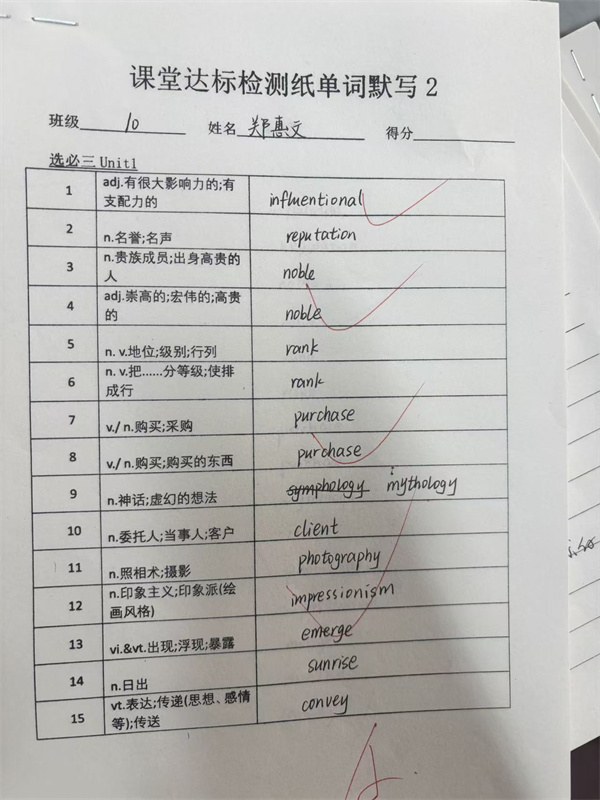 课堂达标检测纸单词默写 2
班级 10 姓名 郑惠文 得分
选必三 Unit1
1 adj.有很大影响力的;有支配力的 influentional
2 n.名誉;名声 reputation
3 n.贵族成员;出身高贵的人 noble
4 adj.崇高的;宏伟的;高贵的 noble
5 n. v.地位;级别;行列 rank
6 n. v.把……分等级;使排成行 rank
7 v./ n.购买;采购 purchase
8 v./ n.购买;购买的东西 purchase
9 n.神话;虚幻的想法 symphology mythology
10 n.委托人;当事人;客户 client
11 n.照相术;摄影 photography
12 n.印象主义;印象派(绘画风格) impressionism
13 vi.&vt.出现;浮现;暴露 emerge
14 n.日出 sunrise
15 vt.表达;传递(思想、感情等);传送 convey